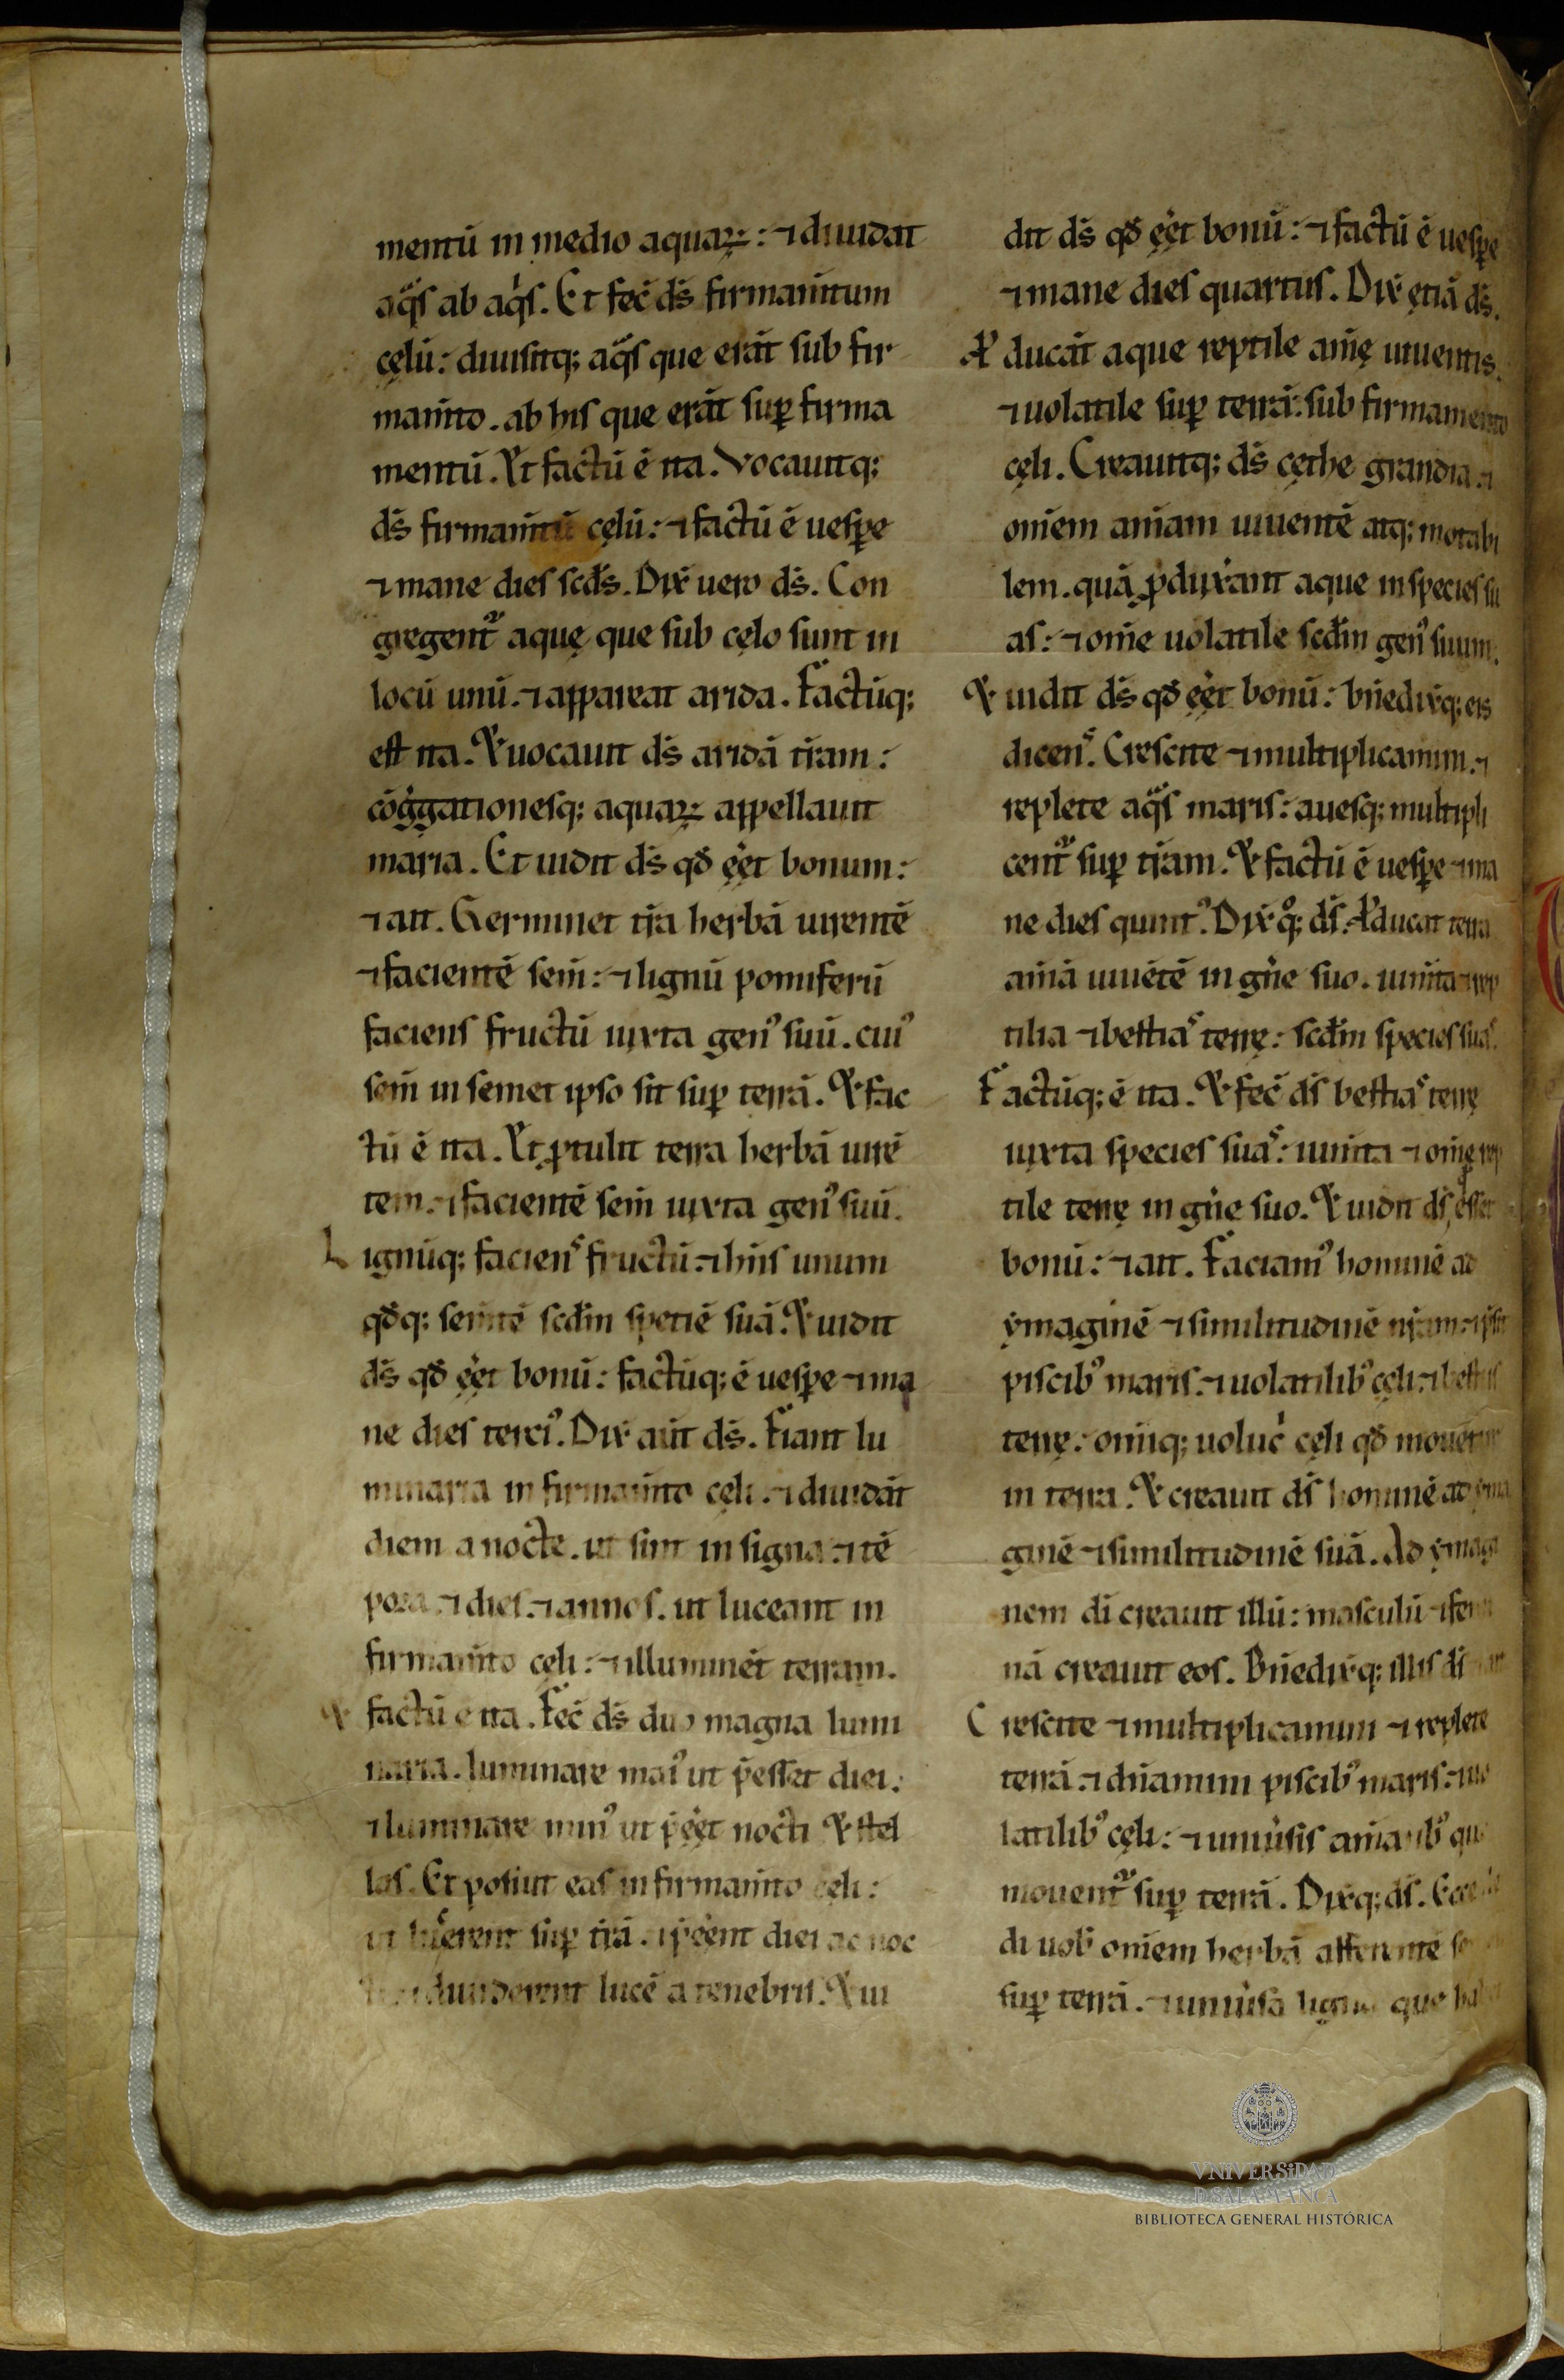 mentū in medio aquaꝝ: ⁊ diuidat
aq̈s ab aq̇s. Et fec̄ ds̄ firmam̄tum
cęlū: diuisitq; aq̈s que erāt sub fir
mam̄to. ab his que erāt suꝑ firma
mentū. Et factū ē ita. Vocauitq;
ds̄ firmam̄tū cęlū: ⁊ factū ē uesꝑe
⁊ mane dies scd̄s. Dix̄ uero ds̄. Con
gregent᷑ aquę que sub cęlo sunt in
locū unū. ⁊ appareat arida. Factūq;
est ita. Et uocauit ds̄ aridā tr̄am:
cōg̓gationesq; aquaꝝ appellauit
maria. Et uidit ds̄ qđ ęēt bonum:
⁊ ait. Germinet tr̄a herbā uirentē
⁊ facientē sem̄: ⁊ lignū pomiferū
faciens fructū iuxta genꝰ suū. cuiꝰ
sem̄ in semet ipso sit suꝑ terrā. Et fac
tū ē ita. Et ꝓtulit terra herbā uirē
tem. ⁊ facientē sem̄ iuxta genꝰ suū.
Lignūq; faciens fructū. ⁊ hn̄s unum
qđq; sem̄tē scđm spetiē suā. Et uidit
ds̄ qđ ęēt bonū: factūq; ē uesꝑe ⁊ ma
ne dies terciꝰ. Dix̄ aūt ds̄. Fiant lu
minaria in firmam̄to cęli. ⁊ diuidāt
diem a nocte. ut sint in signa. ⁊ tē
pora. ⁊ dies. ⁊ annos. ut luceant in
firmam̄to cęli: ⁊ illuminēt terram.
Et factū ē ita. Fec̄ ds̄ duo magna lumi
naria. luminare maiꝰ ut p̄esset diei:
⁊ luminare minꝰ ut p̄ęēt nocti Et stel
las. Et posiut eas in firmam̄to cęli:
ut lucerent suꝑ tr̄ā. ⁊ p̄ęēnt diei ac noc
diuiderent lucē a tenebris. Et ui
dit ds̄ qđ ęēt bonū: ⁊ factū ē uesꝑe
⁊ mane dies quartus. Dix̄ ętiā ds̄.
Ꝓducāt aque reptile aīę uiuentis.
⁊ uolatile suꝑ terrā: sub firmamento
cęli. Creauitq; ds̄ cęthe grandia. ⁊
om̄em aīam uiuentē atq; motabi
lem. quā ꝓdux̄ant aque in species su
as: ⁊ om̄e uolatile scđm genꝰ suum.
Et uidit ds̄ qđ ęēt bonū: bn̄edix̄q; eis
dicens. Crescite ⁊ multiplicamini. ⁊
replete aq̈s maris: auesq; multipli
cent᷑ suꝑ tr̄am. Et factū ē uesꝑe ⁊ ma
ne dies quintꝰ. Dix̄ q̊q; ds̄. Ꝓducat terra
aīā uiuētē in gn̄e suo. ium̄ta ⁊ rep
tilia ⁊ bestias terrę: scđm species suas.
Factūq; ē ita. Et fec̄ ds̄ bestias terrę
iuxta species suas: ium̄ta ⁊ om̄ę rep
tile terrę in gn̄e suo. Et uidit ds̄ qđ esset
bonū: ⁊ ait. Faciamꝰ hominē ad
ymaginē ⁊ similitudinē nr̄am. ⁊ p̄sit
piscibꝰ maris. ⁊ uolatilibꝰ cęli. ⁊ bestiis
terrę: om̄iq; uoluc̄ cęli qđ mouet
in terra. Et creauit ds̄ hominē ad yma
ginē ⁊ similitudinē suā. Ad ymagi
nem di creauit illū: masculū ⁊ femi
nā creauit eos. Bn̄edix̄q; illis ds̄
Crescite ⁊ multiplicamini ⁊ replete
terrā. ⁊ dn̄amini piscibꝰ maris. ⁊ uo
latilibꝰ cęli: ⁊ uniu̓sis aīantibꝰ que
mouent᷑ suꝑ terrā. Dix̄q; ds̄. Ecce
di uob̄ om̄em herbā afferentē
suꝑ terrā. ⁊ uniu̓sa ligna que
VNIVERSiDAD
D SALAMANCA
BIBLIOTECA GENERAL HISTÓRICA